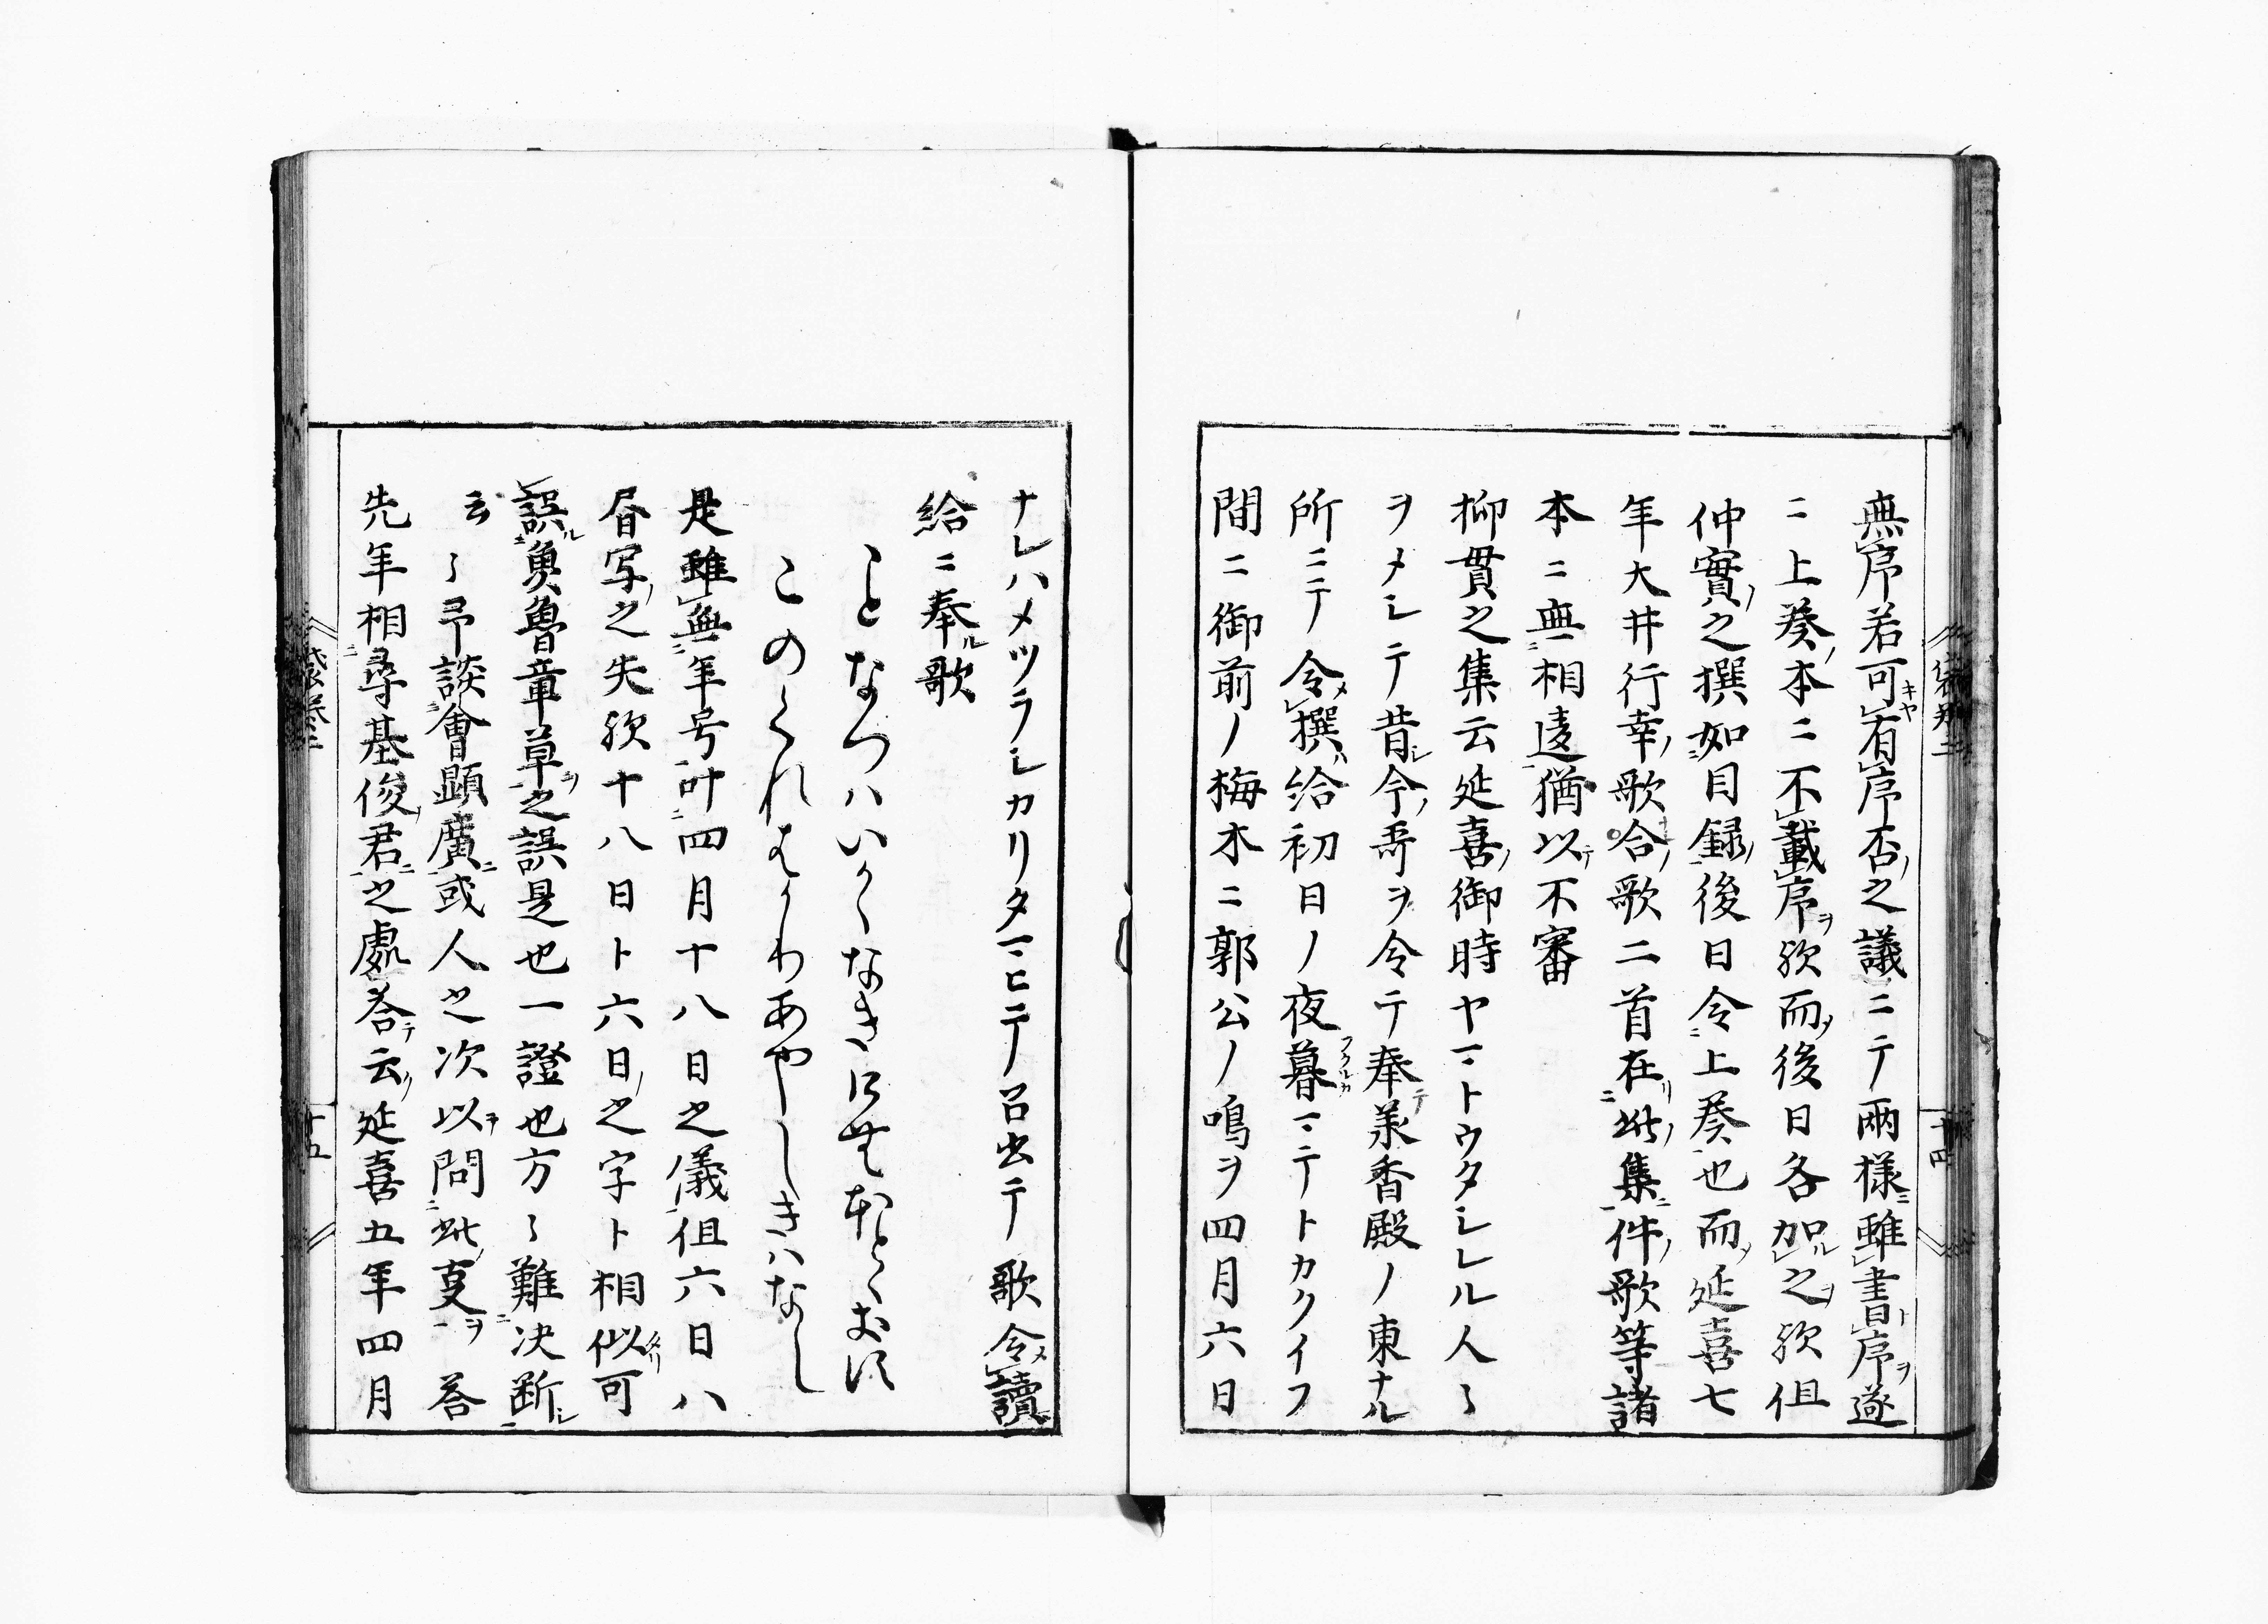 無序若可有序否之議ニテ兩様雖書序遂
ニ上葵本ニ不載序欤而後日各加之欤但
仲實之撰如目録後日令上葵也而延喜七
年大井行幸歌合歌二首在此集件歌等諸
本ニ無相違猶以不審
抑貫之集云延喜御時ヤマトウタシレル人〻
ヲメシテ昔今哥ヲ令テ奉羕香殿ノ東ナル
所ニテ令撰給初日ノ夜暮マテトカクイフ
間ニ御前ノ梅木ニ郭公ノ鳴ヲ四月六日
ナレハメツラシカリタマヒテ召出テ歌令讀
給ニ奉歌
ことなつハいかゝなきけむほとゝきす
このくれはかりあやしきハなし
是雖無年号叶四月十八日之儀但六日八
昏写之失欤十八日ト六日之字ト相似可
誤魚魯章草之誤是也一證也方〻難決断
云〻予談會顕廣或人之次以問此叓答
先年相尋基俊君之處荅云延喜五年四月
十五